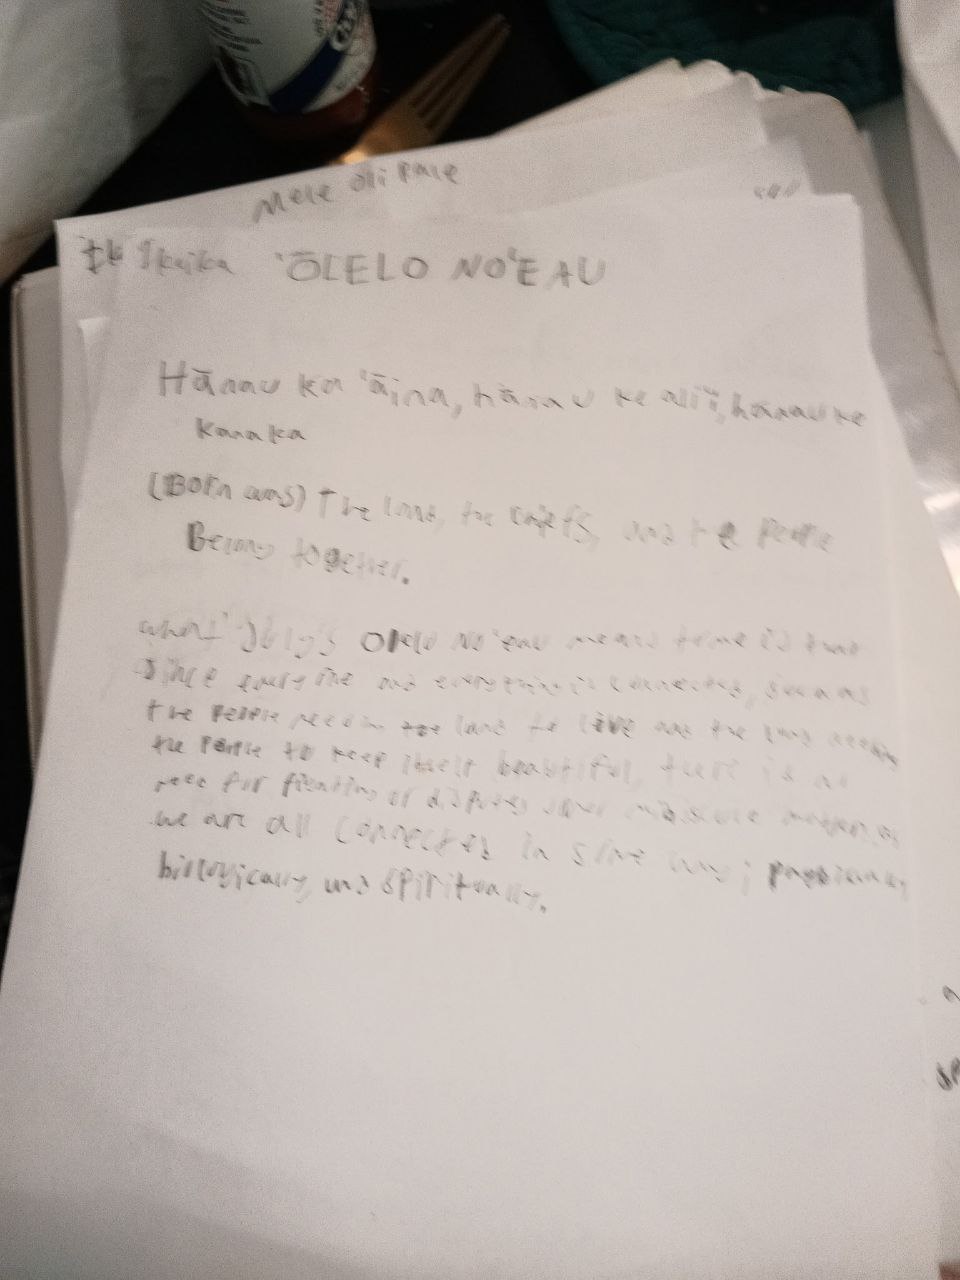 Mele Oli Pale
Ikaika 'ŌLELO NO'EAU
Hānau ka 'āina, hānau ke ali'i, hānau ke
kanaka
(Born was) The land, the chiefs, and the People
Belong together.
what Olelo No'eau means to me is that
since everyone and everything is connected, such as
the People need the land to live and the land needing
the People to keep itself beautiful, there is no
need for fighting or disputes over
we are all connected in some way; physically,
biologically, and spiritually.